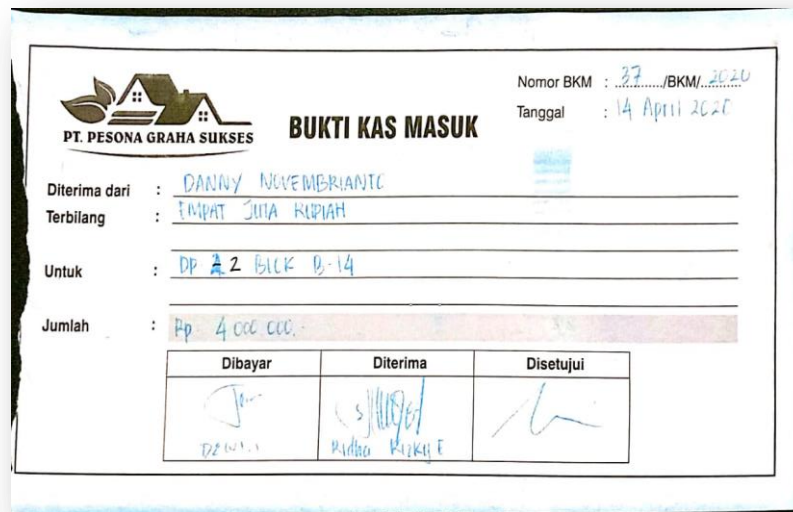 PT. PESONA GRAHA SUKSES
BUKTI KAS MASUK
Nomor BKM : 37 /BKM/ 2020
Tanggal : 14 April 2020
Diterima dari : DANNY NOVEMBRIANTO
Terbilang : EMPAT JUTA RUPIAH
Untuk : DP 2 BLOK B-14
Jumlah : Rp. 4.000.000,-
Dibayar Diterima Disetujui
Ridha Rizky E